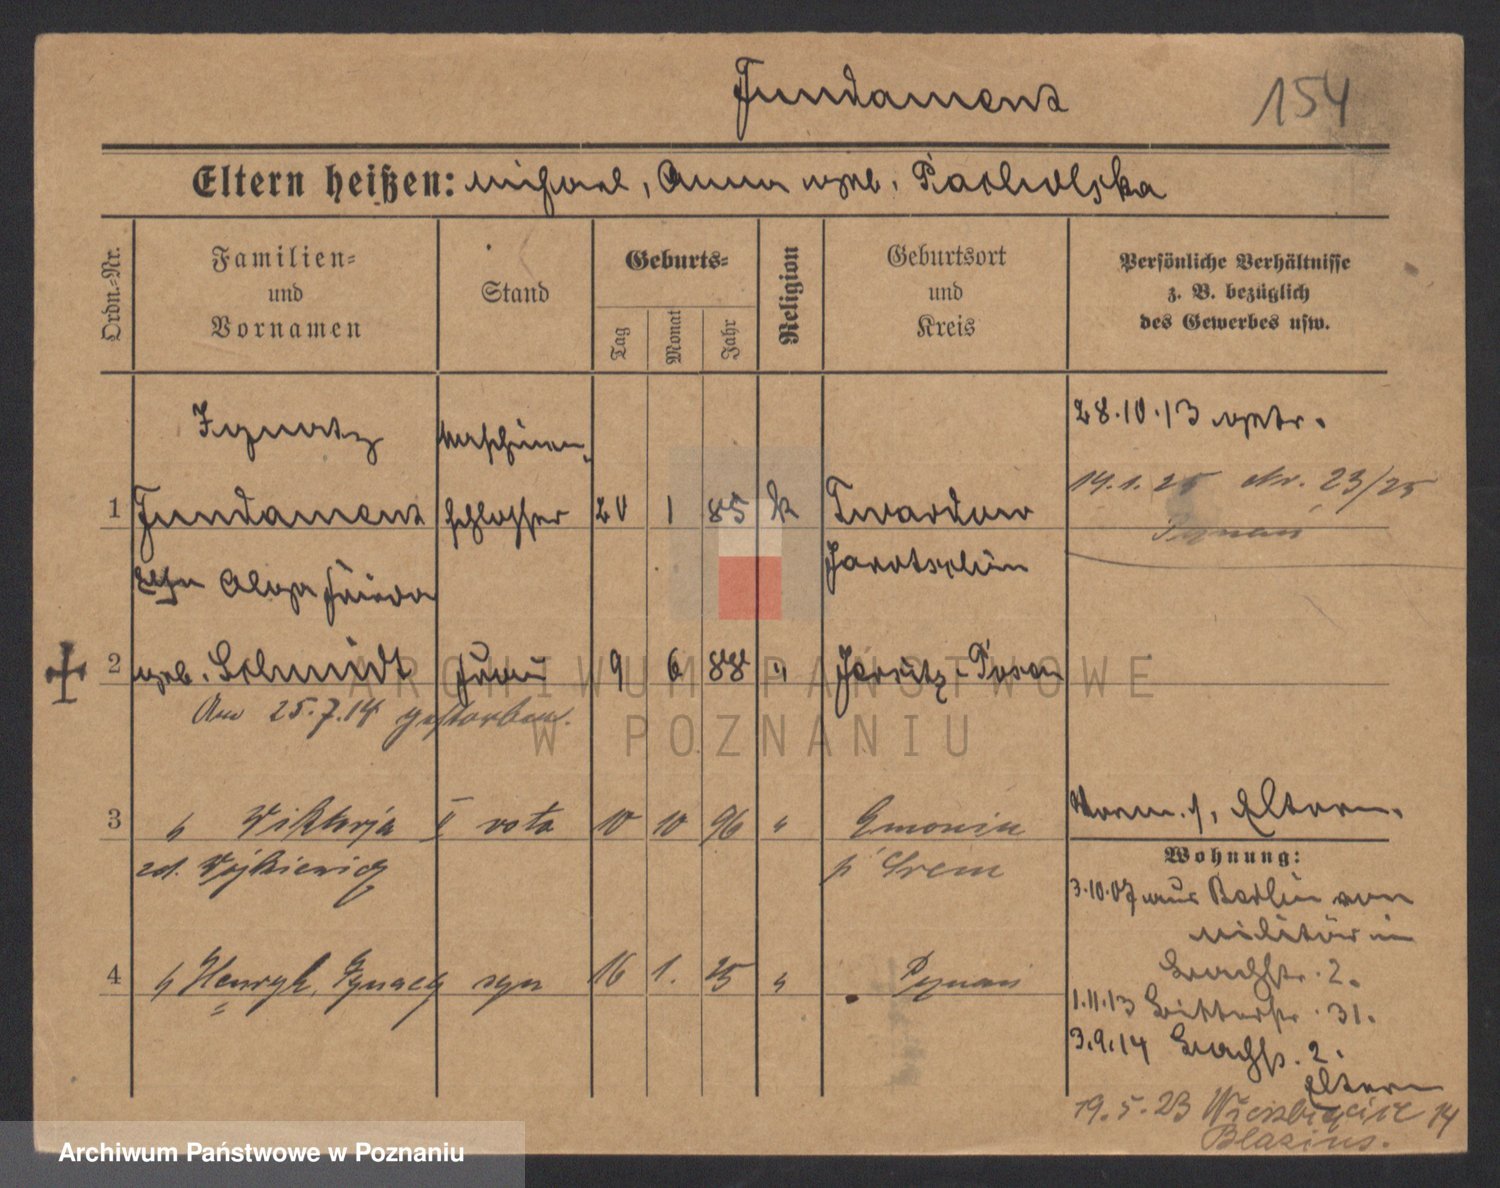 Fundament
154
Eltern heißen: Michael, Anna geb. Pacholska
Ordn.-Nr.
Familien-
und
Vornamen
Stand
Geburts-
Tag
Monat
Jahr
Religion
Geburtsort
und
Kreis
Persönliche Verhältnisse
z. B. bezüglich
des Gewerbes usw.
28.10.13 getr.
Ignatz Maschinen-
14.1.25 Nr. 23/25
1 Fundament schlosser 20 1 85 k Twardow
Poznań
Jarotschin
Frieda
2 geb. Schmidt Frau 9 6 88 " Jersitz-Posen
Am 25.7.14 gestorben.
3 " Wiktorja II vota 10 10 96 "
Vorm. s. Eltern.
zd. Wojkiewicz p. Śrem
Wohnung:
3.10.07 aus Berlin vom
Militär in
Bachstr. 2.
4 " Henryk, Ignacy syn 16 1. 25 " Poznań
1.11.13 Bitterstr. 31.
3.9.14 Bachstr. 2.
Eltern
19.5.23 Wierzbięcice 14
Blazius.
ARCHIWUM PAŃSTWOWE
W POZNANIU
Archiwum Państwowe w Poznaniu